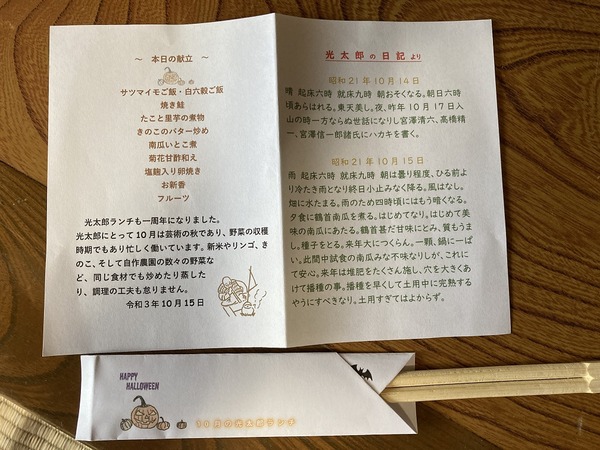 ～ 本日の献立 ～
サツマイモご飯・白六穀ご飯
焼き鮭
たこと里芋の煮物
きのこのバター炒め
南瓜いとこ煮
菊花甘酢和え
塩麹入り卵焼き
お新香
フルーツ
光太郎ランチも一周年になりました。
光太郎にとって10月は芸術の秋であり、野菜の収穫
時期でもあり忙しく働いています。新米やリンゴ、き
のこ、そして自作農園の数々の野菜な
ど、同じ食材でも炒めたり蒸した
り、調理の工夫も怠りません。
令和3年10月15日
光太郎の日記より
昭和21年10月14日
晴 起床六時 就床九時 朝おそくなる。朝日六時
頃あらはれる。東天美し。夜、昨年10月17日入
山の時一方ならぬ世話になりし宮澤清六、高橋精
一、宮澤信一郎諸氏にハカキを書く。
昭和21年10月15日
雨 起床六時 就床九時 朝は曇り程度、ひる前よ
り冷たき雨となり終日小止みなく降る。風はなし。
畑に水たまる。雨のため四時頃にはもう暗くなる。
夕食に鶴首南瓜を煮る。はじめてなり。はじめて美
味の南瓜にあたる。鶴首甚だ甘味にとみ、質もうま
し。種子をとる。来年大につくらん。一顆、鍋に一ぱ
い。此間中試食の南瓜みな不味なりしが、これに
て安心。来年は堆肥をたくさん施し、穴を大きくあ
けて播種の事。播種を早くして土用中に完熟する
やうにすべきなり。土用すぎてはよからず。
HAPPY
HALLOWEEN
10月の光太郎ランチ